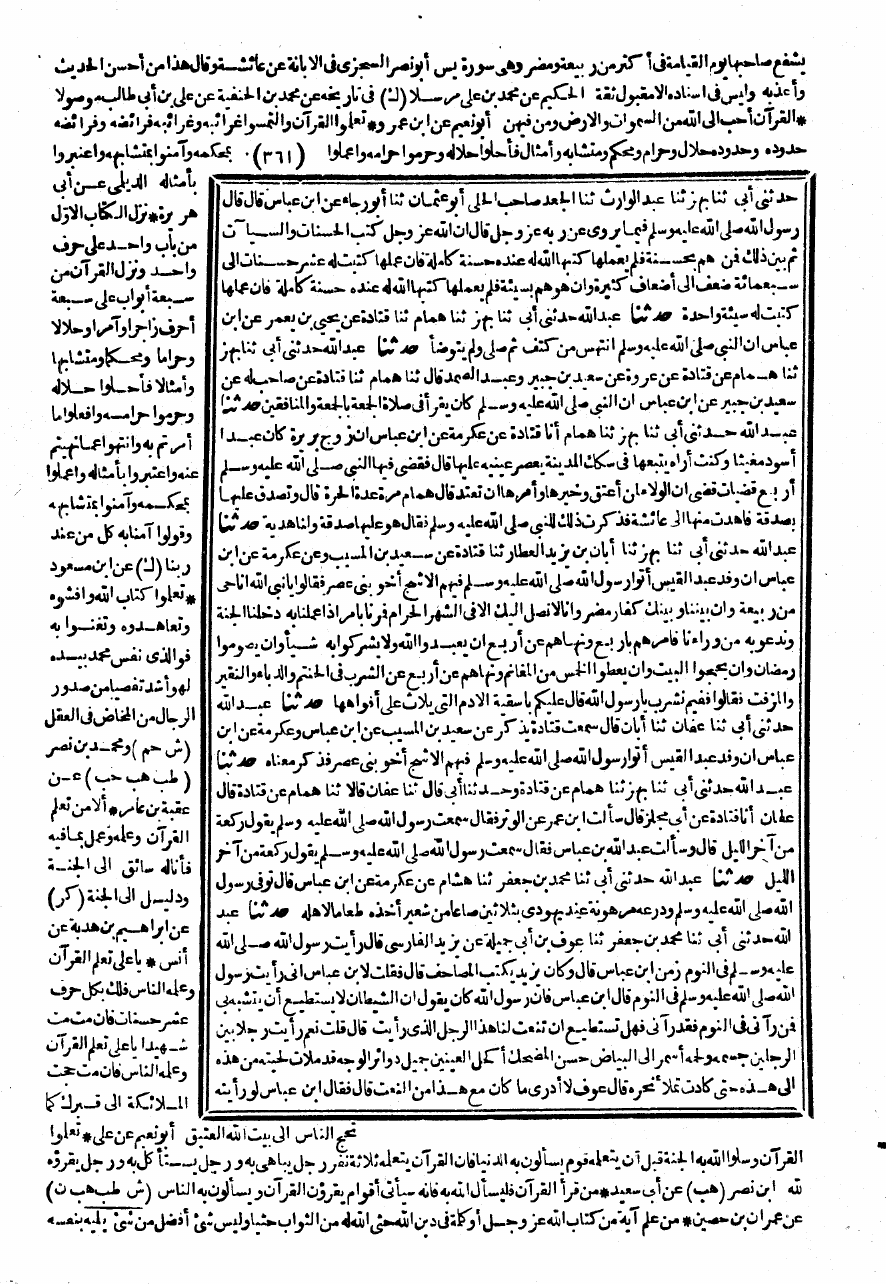 يشفع صاحبها يوم القيامة فى أكثر من ربيعة ومضر وهى سورة يس أبو نصر السجزى فى الابانة عن عائشة وقال هذا من أحسن الحديث
وأعذبه وليس فى اسناده الا مقبول ثقة الحكيم عن محمد بن على مرسلا (ك) فى تاريخه عن محمد بن الحنفية عن على بن أبى طالب موصولا
*القرآن أحب الى الله من السموات والارض ومن فيهن أبو نعيم عن ابن عمرو*تعلموا القرآن والتمسوا غرائبه وغرائبه فرائضه وفرائضه
حدوده وحدوده حلال وحرام ومحكم ومتشابه وأمثال فأحلوا حلاله وحرموا حرامه واعملوا (٣٦١) بمحكمه وآمنوا بمتشابهه واعتبروا
بأمثاله الديلمى عن أبى
هريرة*نزل الكتاب الاول
من باب واحد على حرف
واحد ونزل القرآن من
سبعة أبواب على سبعة
أحرف زاجرا وآمرا وحلالا
وحراما ومحكما ومتشابها
وأمثالا فأحلوا حلاله
وحرموا حرامه وافعلوا ما
أمرتم به وانتهوا عما نهيتم
عنه واعتبروا بأمثاله واعملوا
بمحكمه وآمنوا بمتشابهه
وقولوا آمنا به كل من عند
ربنا (ك) عن ابن مسعود
*تعلموا كتاب الله وافشوه
وتعاهدوه وتغنوا به
فوالذى نفس محمد بيده
لهو أشد تفصيا من صدور
الرجال من المخاض فى العقل
(ش حم) ومحمد بن نصر
(طب هب حب) عن
عقبة بن عامر*ألا من تعلم
القرآن وعلمه وعمل بما فيه
فأنا له سائق الى الجنة
ودليل الى الجنة (كر)
عن ابراهيم بن هدبة عن
أنس*يا على تعلم القرآن
وعلمه الناس فلك بكل حرف
عشر حسنات فان مت مت
شهيدا يا على تعلم القرآن
وعلمه الناس فان مت حجت
الملائكة الى قبرك كما
حدثنى أبى ثنا بهز ثنا عبد الوارث ثنا الجعد صاحب الحلى أبو عثمان ثنا أبو رجاء عن ابن عباس قال قال
رسول الله صلى الله عليه وسلم فيما يروى عن ربه عز وجل قال ان الله عز وجل كتب الحسنات والسيآت
ثم بين ذلك فمن هم بحسنة فلم يعملها كتبها الله له عنده حسنة كاملة فان عملها كتبت له عشر حسنات الى
سبعمائة ضعف الى أضعاف كثيرة وان هو هم بسيئة فلم يعملها كتبها الله له عنده حسنة كاملة فان عملها
كتبت له سيئة واحدة حدثنا عبد الله حدثنى أبى ثنا بهز ثنا همام ثنا قتادة عن يحيى بن يعمر عن ابن
عباس ان النبى صلى الله عليه وسلم انتهس من كتف ثم صلى ولم يتوضأ حدثنا عبد الله حدثنى أبى ثنا بهز
ثنا همام عن قتادة عن عروة عن سعيد بن جبير وعبد الصمد قال ثنا همام ثنا قتادة عن صاحب له عن
سعيد بن جبير عن ابن عباس ان النبى صلى الله عليه وسلم كان يقرأ فى صلاة الجمعة بالجمعة والمنافقين حدثنا
عبد الله حدثنى أبى ثنا بهز ثنا همام أنا قتادة عن عكرمة عن ابن عباس ان زوج بريرة كان عبدا
أسود مغيثا وكنت أراه يتبعها فى سكك المدينة يعصر عينيه عليها قال فقضى فيها النبى صلى الله عليه وسلم
أربع قضيات قضى ان الولاء لمن أعتق وخيرها وأمرها ان تعتد قال همام مرة عدة الحرة قال وتصدق عليها
بصدقة فاهدت منها الى عائشة فذكرت ذلك للنبى صلى الله عليه وسلم فقال هو عليها صدقة ولنا هدية حدثنا
عبد الله حدثنى أبى ثنا بهز ثنا أبان بن يزيد العطار ثنا قتادة عن سعيد بن المسيب وعن عكرمة عن ابن
عباس ان وفد عبد القيس أتوا رسول الله صلى الله عليه وسلم فيهم الاشج أخو بنى عصر فقالوا يا نبى الله انا حى
من ربيعة وان بيننا وبينك كفار مضر وانا لا نصل اليك الا فى الشهر الحرام فمرنا بامر اذا عملنا به دخلنا الجنة
وندعو به من وراءنا فامرهم باربع ونهاهم عن أربع ان يعبدوا الله ولا يشركوا به شيأ وان يصوموا
رمضان وان يحجوا البيت وان يعطوا الخمس من المغانم ونهاهم عن أربع عن الشرب فى الحنتم والدباء والنقير
والمزفت فقالوا ففيم نشرب يا رسول الله قال عليكم باسقية الادم التى يلاث على أفواهها حدثنا عبد الله
حدثنى أبى ثنا عفان ثنا أبان قال سمعت قتادة يذكر عن سعيد بن المسيب عن ابن عباس وعكرمة عن ابن
عباس ان وفد عبد القيس أتوا رسول الله صلى الله عليه وسلم فيهم الاشج أخو بنى عصر فذكر معناه حدثنا
عبد الله حدثنى أبى ثنا بهز ثنا همام عن قتادة وحدثنا أبى قال ثنا عفان قالا ثنا همام عن قتادة قال
عفان أنا قتادة عن أبى مجلز قال سألت ابن عمر عن الوتر فقال سمعت رسول الله صلى الله عليه وسلم يقول ركعة
من آخر الليل قال وسألت عبد الله بن عباس فقال سمعت رسول الله صلى الله عليه وسلم يقول ركعة من آخر
الليل حدثنا عبد الله حدثنى أبى ثنا محمد بن جعفر ثنا هشام عن عكرمة عن ابن عباس قال توفى رسول
الله صلى الله عليه وسلم ودرعه مرهونة عند يهودى بثلاثين صاعا من شعير أخذه طعاما لاهله حدثنا عبد
الله حدثنى أبى ثنا محمد بن جعفر ثنا عوف بن أبى جميلة عن يزيد الفارسى قال رأيت رسول الله صلى الله
عليه وسلم فى النوم زمن ابن عباس قال وكان يزيد يكتب المصاحف قال فقلت لابن عباس انى رأيت رسول
الله صلى الله عليه وسلم فى النوم قال ابن عباس فان رسول الله كان يقول ان الشيطان لا يستطيع أن يتشبه بى
فمن رآنى فى النوم فقد رآنى فهل تستطيع ان تنعت لنا هذا الرجل الذى رأيت قال قلت نعم رأيت رجلا بين
الرجلين جسمه ولحمه أسمر الى البياض حسن المضحك أكحل العينين جميل دوائر الوجه قد ملات لحيته من هذه
الى هذه حتى كادت تملأ نحره قال عوف لا أدرى ما كان مع هذا من النعت قال فقال ابن عباس لو رأيته
تحج الناس الى بيت الله العتيق أبو نعيم عن على*تعلموا
القرآن وسلوا الله به الجنة قبل أن يتعلمه قوم يسألون به الدنيا فان القرآن يتعلمه ثلاثة نفر رجل يباهى به ورجل يستأكل به ورجل يقرؤه
لله ابن نصر (هب) عن أبى سعيد*من قرأ القرآن فليسأل الله به فانه سيأتى أقوام يقرؤن القرآن ويسألون به الناس (ش طب هب ن)
عن عمران بن حصين*من علم آية من كتاب الله عز وجل أو كلمة فى دين الله حثى الله له من الثواب حثيا وليس شئ أفضل من شئ يليه بنفسه